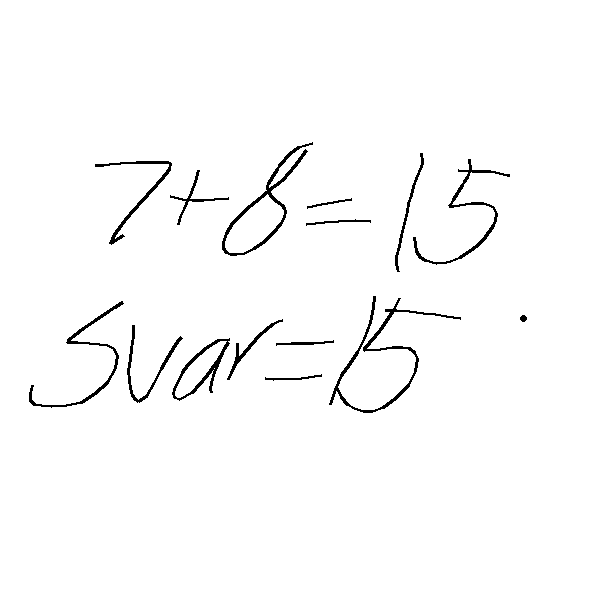 7+8=15
Svar=15